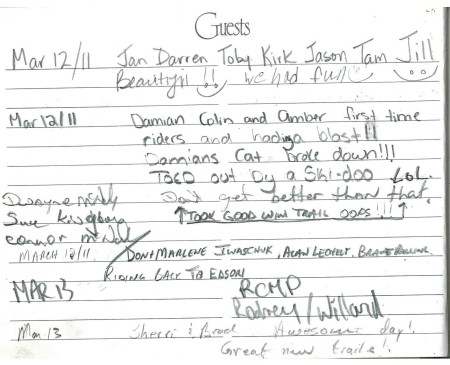 Guests
Mar 12/11 Jan Darren Toby Kirk Jason Tam Jill
Beautyfil !! we had fun
Mar 12/11 Damian Colin and Amber first time
riders and hadiga blast!!
Damians Cat broke down!!!
TOED out by a Ski-doo LOL.
Dwayne McNally Don't get better than that.
Sue Kingburg ↑TOOK GOOD WIN TRAIL OOPS!!!↑
Connor McNall
MARCH 12/11 DON & MARLENE IWASCHUK, ALAN
RIDING BACK TO EDSON
MAR 13 RCMP
Rodney/Willard
Mar 13 Sherri & Brad Awesome day!
Great new trails!